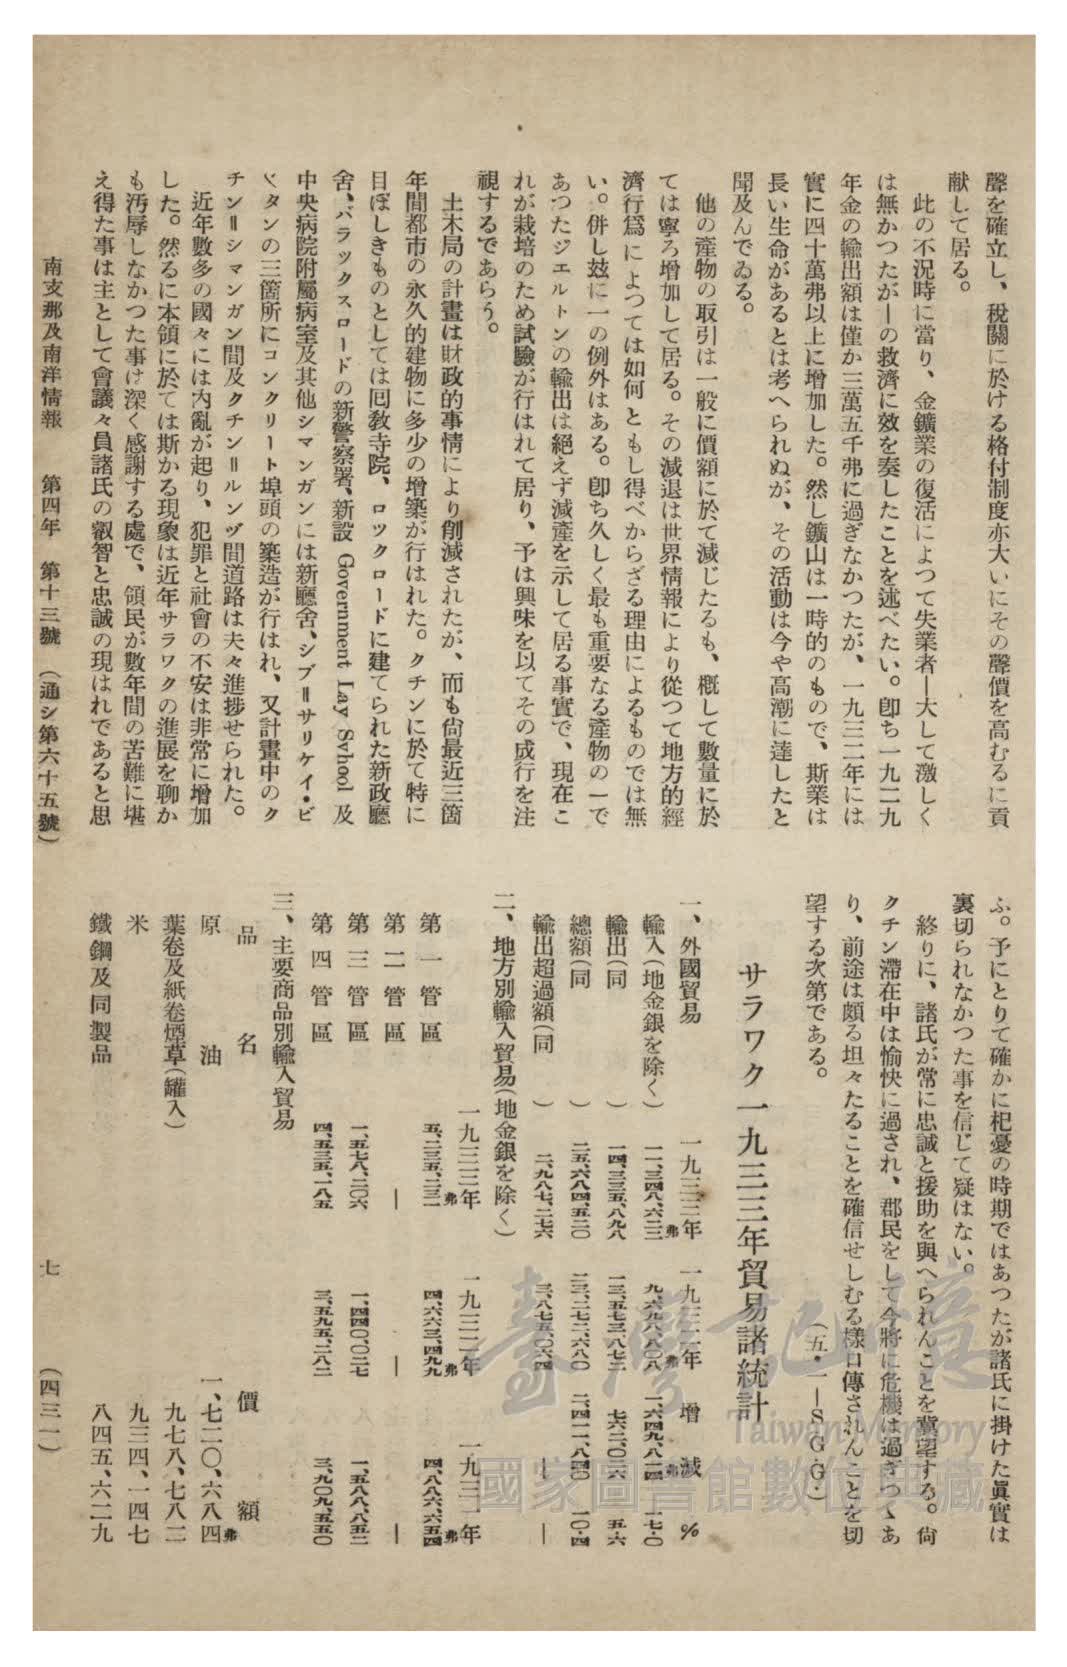 聲を確立し、稅關に於ける格付制度亦大いにその聲價を高むるに貢
献して居る。
此の不況時に當り、金鑛業の復活によつて失業者―大して激しく
は無かつたが―の救濟に效を奏したことを述べたい。卽ち一九二九
年金の輸出額は僅か三萬五千弗に過ぎなかつたが、一九三二年には
實に四十萬弗以上に增加した。然し鑛山は一時的のもので、斯業は
長い生命があるとは考へられぬが、その活動は今や高潮に達したと
聞及んでゐる。
他の產物の取引は一般に價額に於て減じたるも、槪して數量に於
ては寧ろ增加して居る。その減退は世界情報により從つて地方的經
濟行爲によつては如何ともし得べからざる理由によるものでは無
い。併し玆に一の例外はある。卽ち久しく最も重要なる產物の一で
あつたジエルトンの輸出は絕えず減產を示して居る事實で、現在こ
れが栽培のため試驗が行はれて居り、予は興味を以てその成行を注
視するであらう。
土木局の計畫は財政的事情により削減されたが、而も尙最近三箇
年間都市の永久的建物に多少の增築が行はれた。クチンに於て特に
目ぼしきものとしては囘敎寺院、ロツクロードに建てられた新政廳
舍、バラツクスロードの新警察署、新設 Government Lay Svhool 及
中央病院附屬病室及其他シマンガンには新廳舍、シブ＝サリケイ・ビ
ンタンの三箇所にコンクリート埠頭の築造が行はれ、又計畫中のク
チン＝シマンガン間及クチン＝ルンヅ間道路は夫々進捗せられた。
近年數多の國々には內亂が起り、犯罪と社會の不安は非常に增加
した。然るに本領に於ては斯かる現象は近年サラワクの進展を聊か
も汚辱しなかつた事は深く感謝する處で、領民が數年間の苦難に堪
え得た事は主として會議々員諸氏の叡智と忠誠の現はれであると思
ふ。予にとりて確かに杞憂の時期ではあつたが諸氏に掛けた眞實は
裏切られなかつた事を信じて疑はない。
終りに、諸氏が常に忠誠と援助を與へられんことを冀望する。尙
クチン滯在中は愉快に過され、郡民をして今將に危機は過ぎつゝあ
り、前途は頗る坦々たることを確信せしむる樣口傳されんことを切
望する次第である。　（五・一―S・G・G・）
サラワク一九三三年貿易諸統計
一、外國貿易　一九三三年　一九三二年　增減　%
輸入（地金銀を除く）　一一、三四八、六二三弗　九、六九八、八〇八弗　一、六四九、八一四弗　一七・〇
輸出（同　）　一四、三三五、八九八　一三、五七三、八七二　七六二、〇二六　五・六
總額（同　）　二五、六八四、五二〇　二三、二七二、六八〇　二、四一一、八四〇　一〇・四
輸出超過額（同　）　二、九八七、二七六　三、八七五、〇六四　―　―
二、地方別輸入貿易（地金銀を除く）
一九三三年　一九三二年　一九三一年
第一管區　五、二三五、二三二弗　四、六六三、四九九弗　四、八八六、六五四弗
第二管區　―　―　―
第三管區　一、五七八、二〇六　一、四四〇、〇二七　一、五八八、八五二
第四管區　四、五三五、一八五　三、五九五、二八二　三、九〇九、五五〇
三、主要商品別輸入貿易
品名　價額
原油　一、七二〇、六八四弗
葉卷及紙卷煙草（罐入）　九七八、七八二
米　九三四、一四七
鐵鋼及同製品　八四五、六二九
南支那及南洋情報　第四年　第十三號　（通シ第六十五號）　七　（四三一）
臺灣記憶
Taiwan Memory
國家圖書館數位典藏